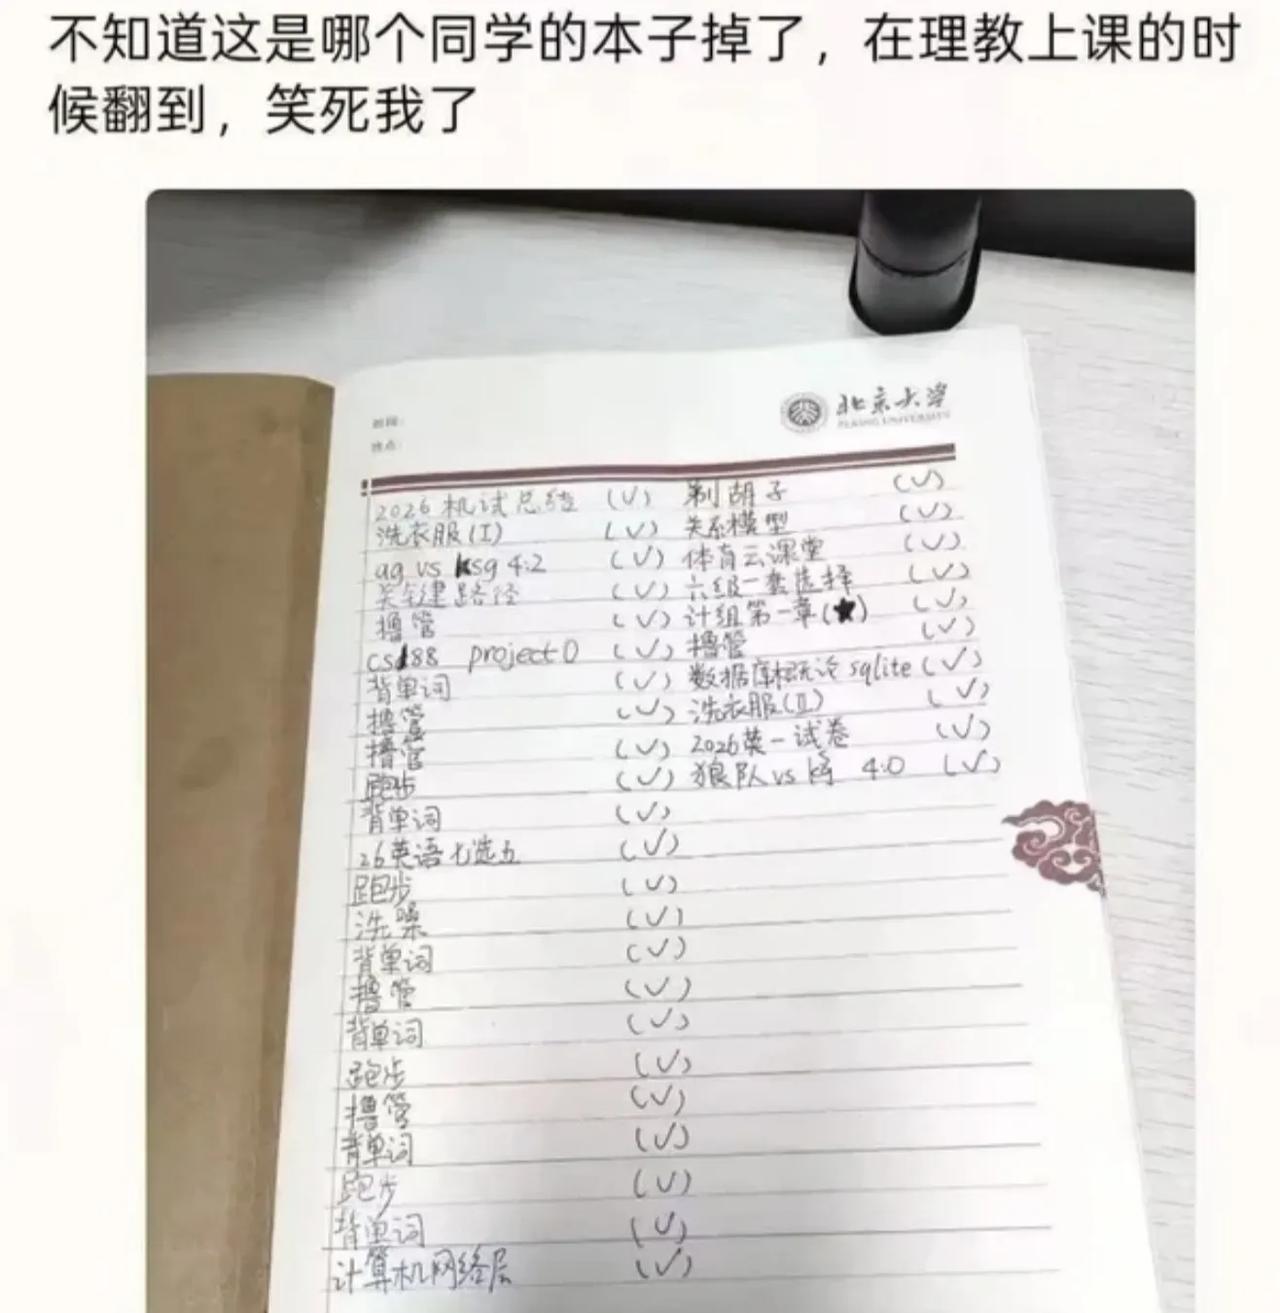 不知道这是哪个同学的本子掉了，在理教上课的时
候翻到，笑死我了
北京大学
PEKING UNIVERSITY
时间：
地点：
2026 机试总结 (√) 剃胡子 (√)
洗衣服(I) (√) 关系模型 (√)
ag vs ksg 4:2 (√) 体育云课堂 (√)
关键路径 (√) 六级一套选择 (√)
撸管 (√) 计组第一章(★) (√)
cs188 project0 (√) 撸管 (√)
背单词 (√) 数据库概论 sqlite (√)
撸管 (√) 洗衣服(II) (√)
撸管 (√) 2026英一试卷 (√)
跑步 (√) 狼队 vs 4:0 (√)
背单词 (√)
26英语七选五 (√)
跑步 (√)
洗澡 (√)
背单词 (√)
撸管 (√)
背单词 (√)
跑步 (√)
撸管 (√)
背单词 (√)
跑步 (√)
背单词 (√)
计算机网络层 (√)